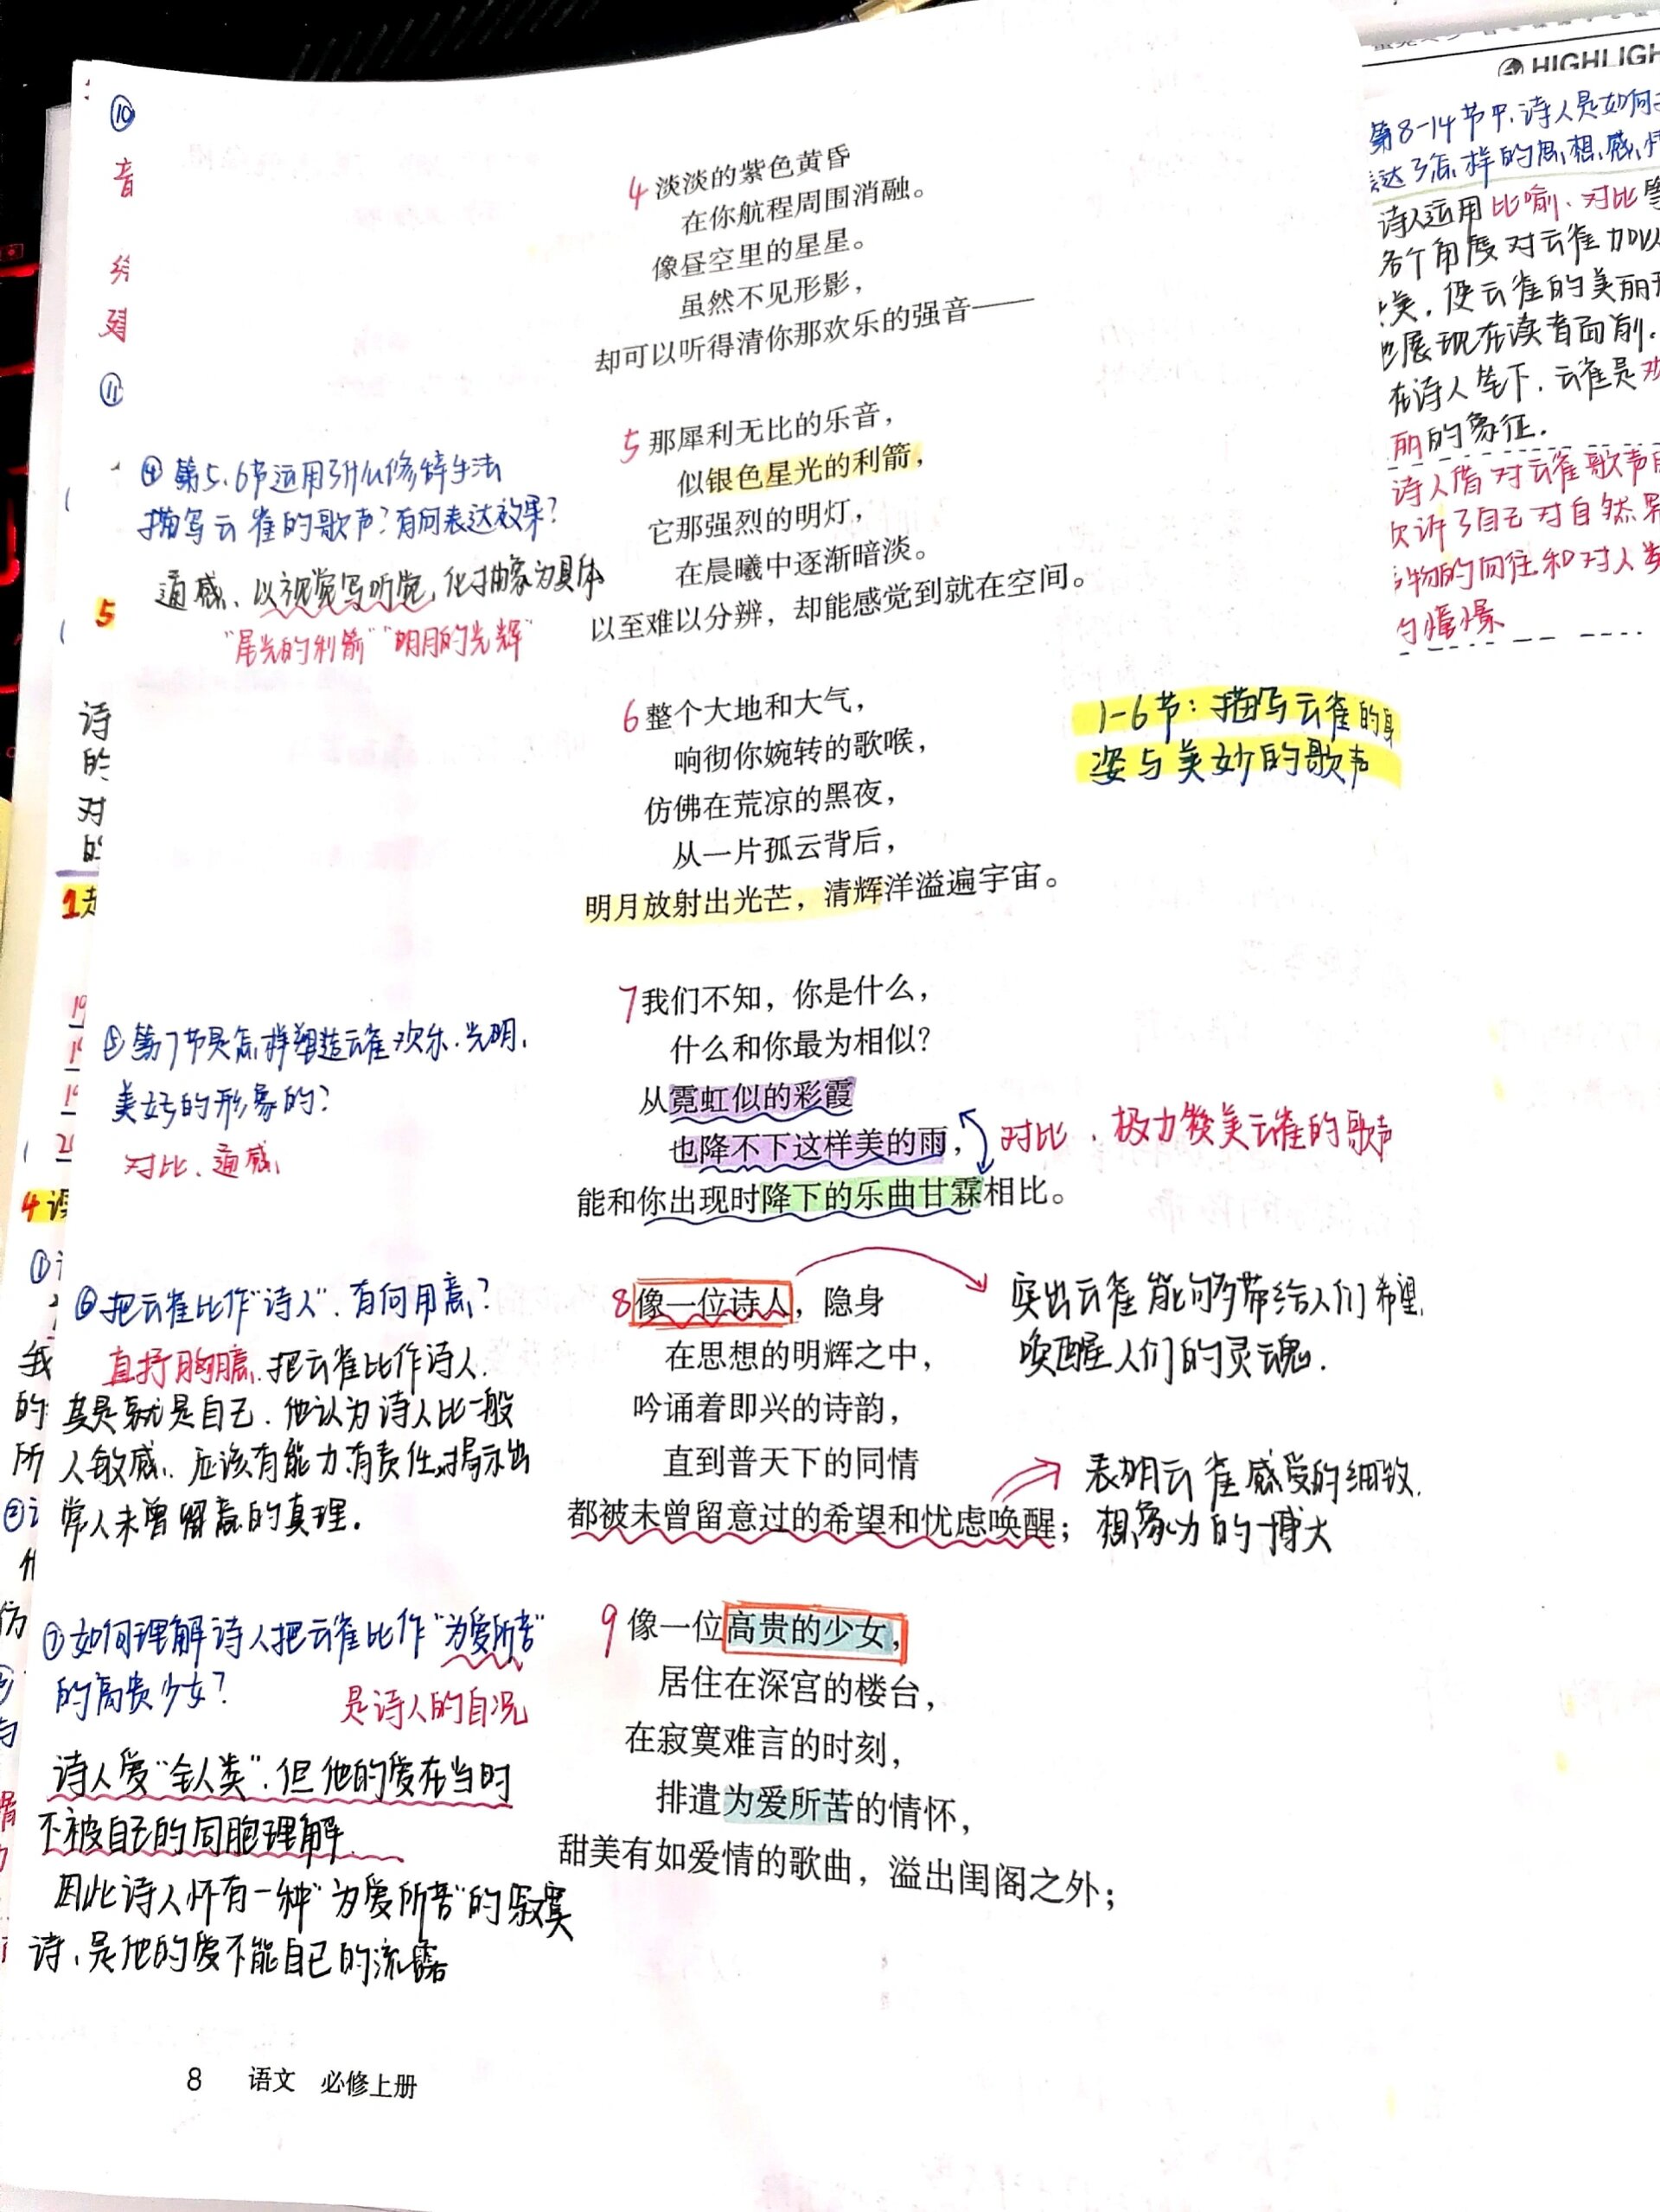 ⑩
音
⑪
4 淡淡的紫色黄昏
在你航程周围消融。
像昼空里的星星。
虽然不见形影，
却可以听得清你那欢乐的强音——
5 那犀利无比的乐音，
似银色星光的利箭，
它那强烈的明灯，
在晨曦中逐渐暗淡。
以至难以分辨，却能感觉到就在空间。
④第5、6节运用了什么修辞手法
描写云雀的歌声？有何表达效果？
通感、以视觉写听觉，化抽象为具体
"星光的利箭""明月的光辉"
5
6 整个大地和大气，
响彻你婉转的歌喉，
仿佛在荒凉的黑夜，
从一片孤云背后，
明月放射出光芒，清辉洋溢遍宇宙。
1-6节：描写云雀的身
姿与美妙的歌声
诗
的
对
7 我们不知，你是什么，
什么和你最为相似？
从霓虹似的彩霞
也降不下这样美的雨，
能和你出现时降下的乐曲甘霖相比。
⑤第7节是怎样塑造云雀欢乐、光明、
美好的形象的？
对比、通感
对比，极力赞美云雀的歌声
8 像一位诗人，隐身
在思想的明辉之中，
吟诵着即兴的诗韵，
直到普天下的同情
都被未曾留意过的希望和忧虑唤醒；
⑥把云雀比作"诗人"，有何用意？
直抒胸臆，把云雀比作诗人，
其是就是自己，他认为诗人比一般
人敏感，应该有能力、有责任揭示出
常人未曾留意的真理。
突出云雀能够带给人们希望，
唤醒人们的灵魂.
表明云雀感受的细致，
想象力的博大
9 像一位高贵的少女，
居住在深宫的楼台，
在寂寞难言的时刻，
排遣为爱所苦的情怀，
甜美有如爱情的歌曲，溢出闺阁之外；
⑦如何理解诗人把云雀比作"为爱所苦"
的高贵少女？
是诗人的自况
诗人爱"全人类"，但他的爱在当时
不被自己的同胞理解
因此诗人怀有一种"为爱所苦"的寂寞
诗，是他的爱不能自已的流露
8 语文 必修上册
HIGHLIGH
第8-14节中，诗人是如何
达了怎样的思想感情
诗人运用比喻、对比等
各个角度对云雀加以
美，使云雀的美丽
展现在读者面前.
在诗人笔下，云雀是欢
丽的象征.
诗人借对云雀歌声的
欢诉了自己对自然界
物的向往和对人类
的憧憬